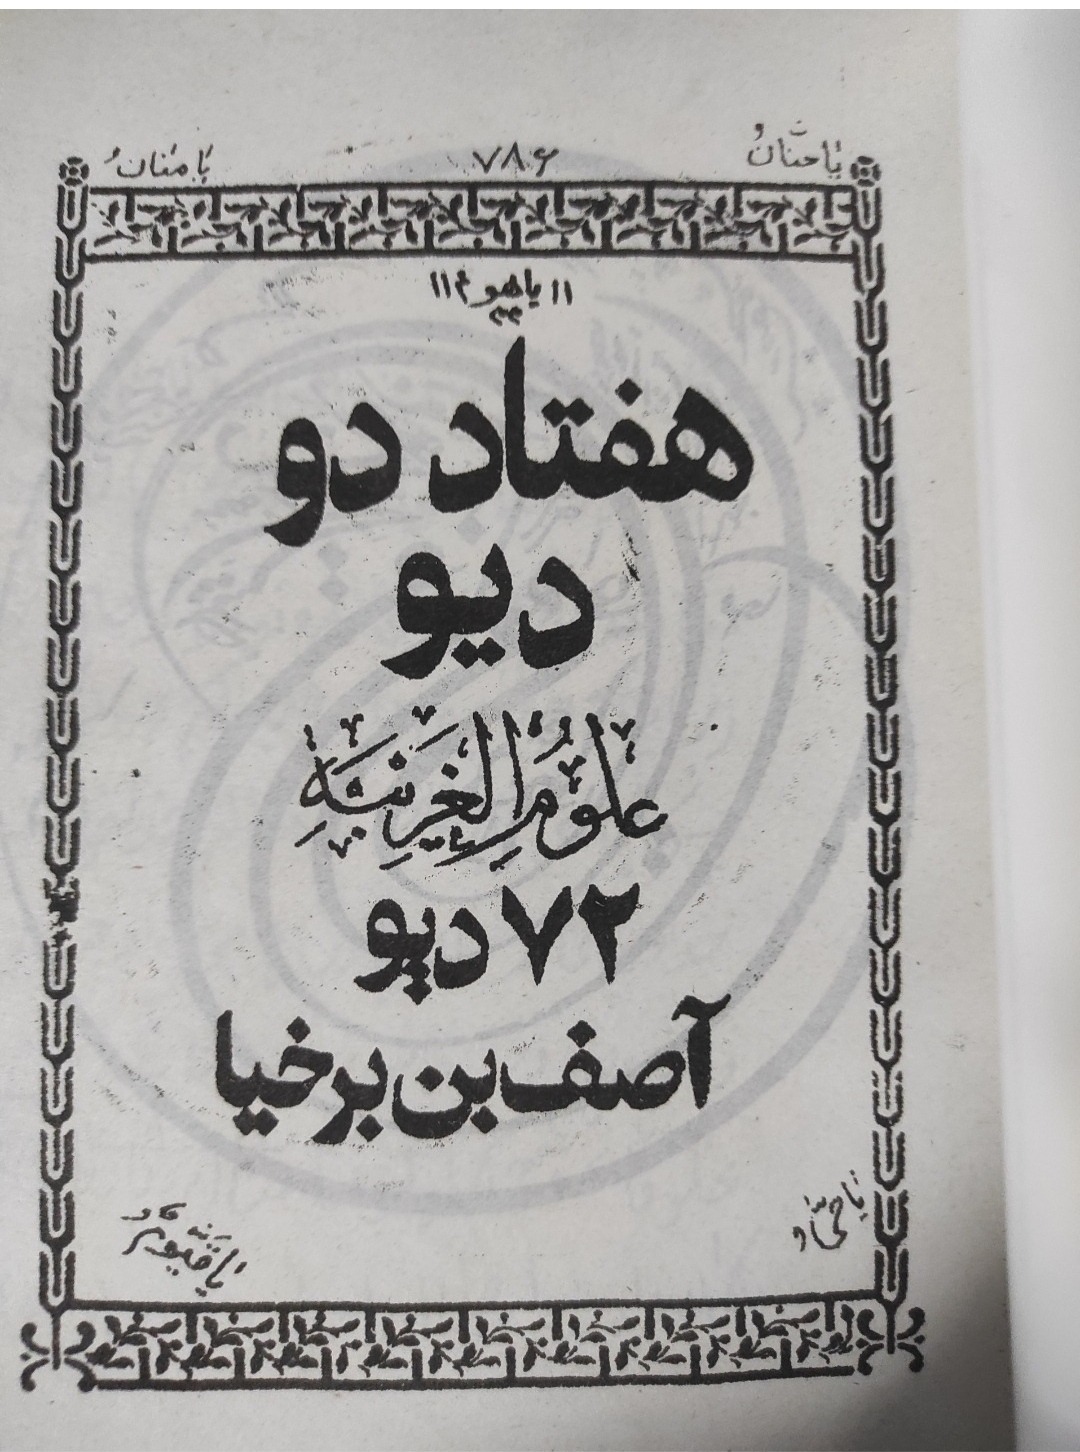 یا حنانُ ۷۸۶ یا منانُ
۱۱ یا هو ۱۱
هفتاد دو
دیو
علومُ الغَریبَیةِ
۷۲ دیو
آصف بن برخیا
یا قیومُ